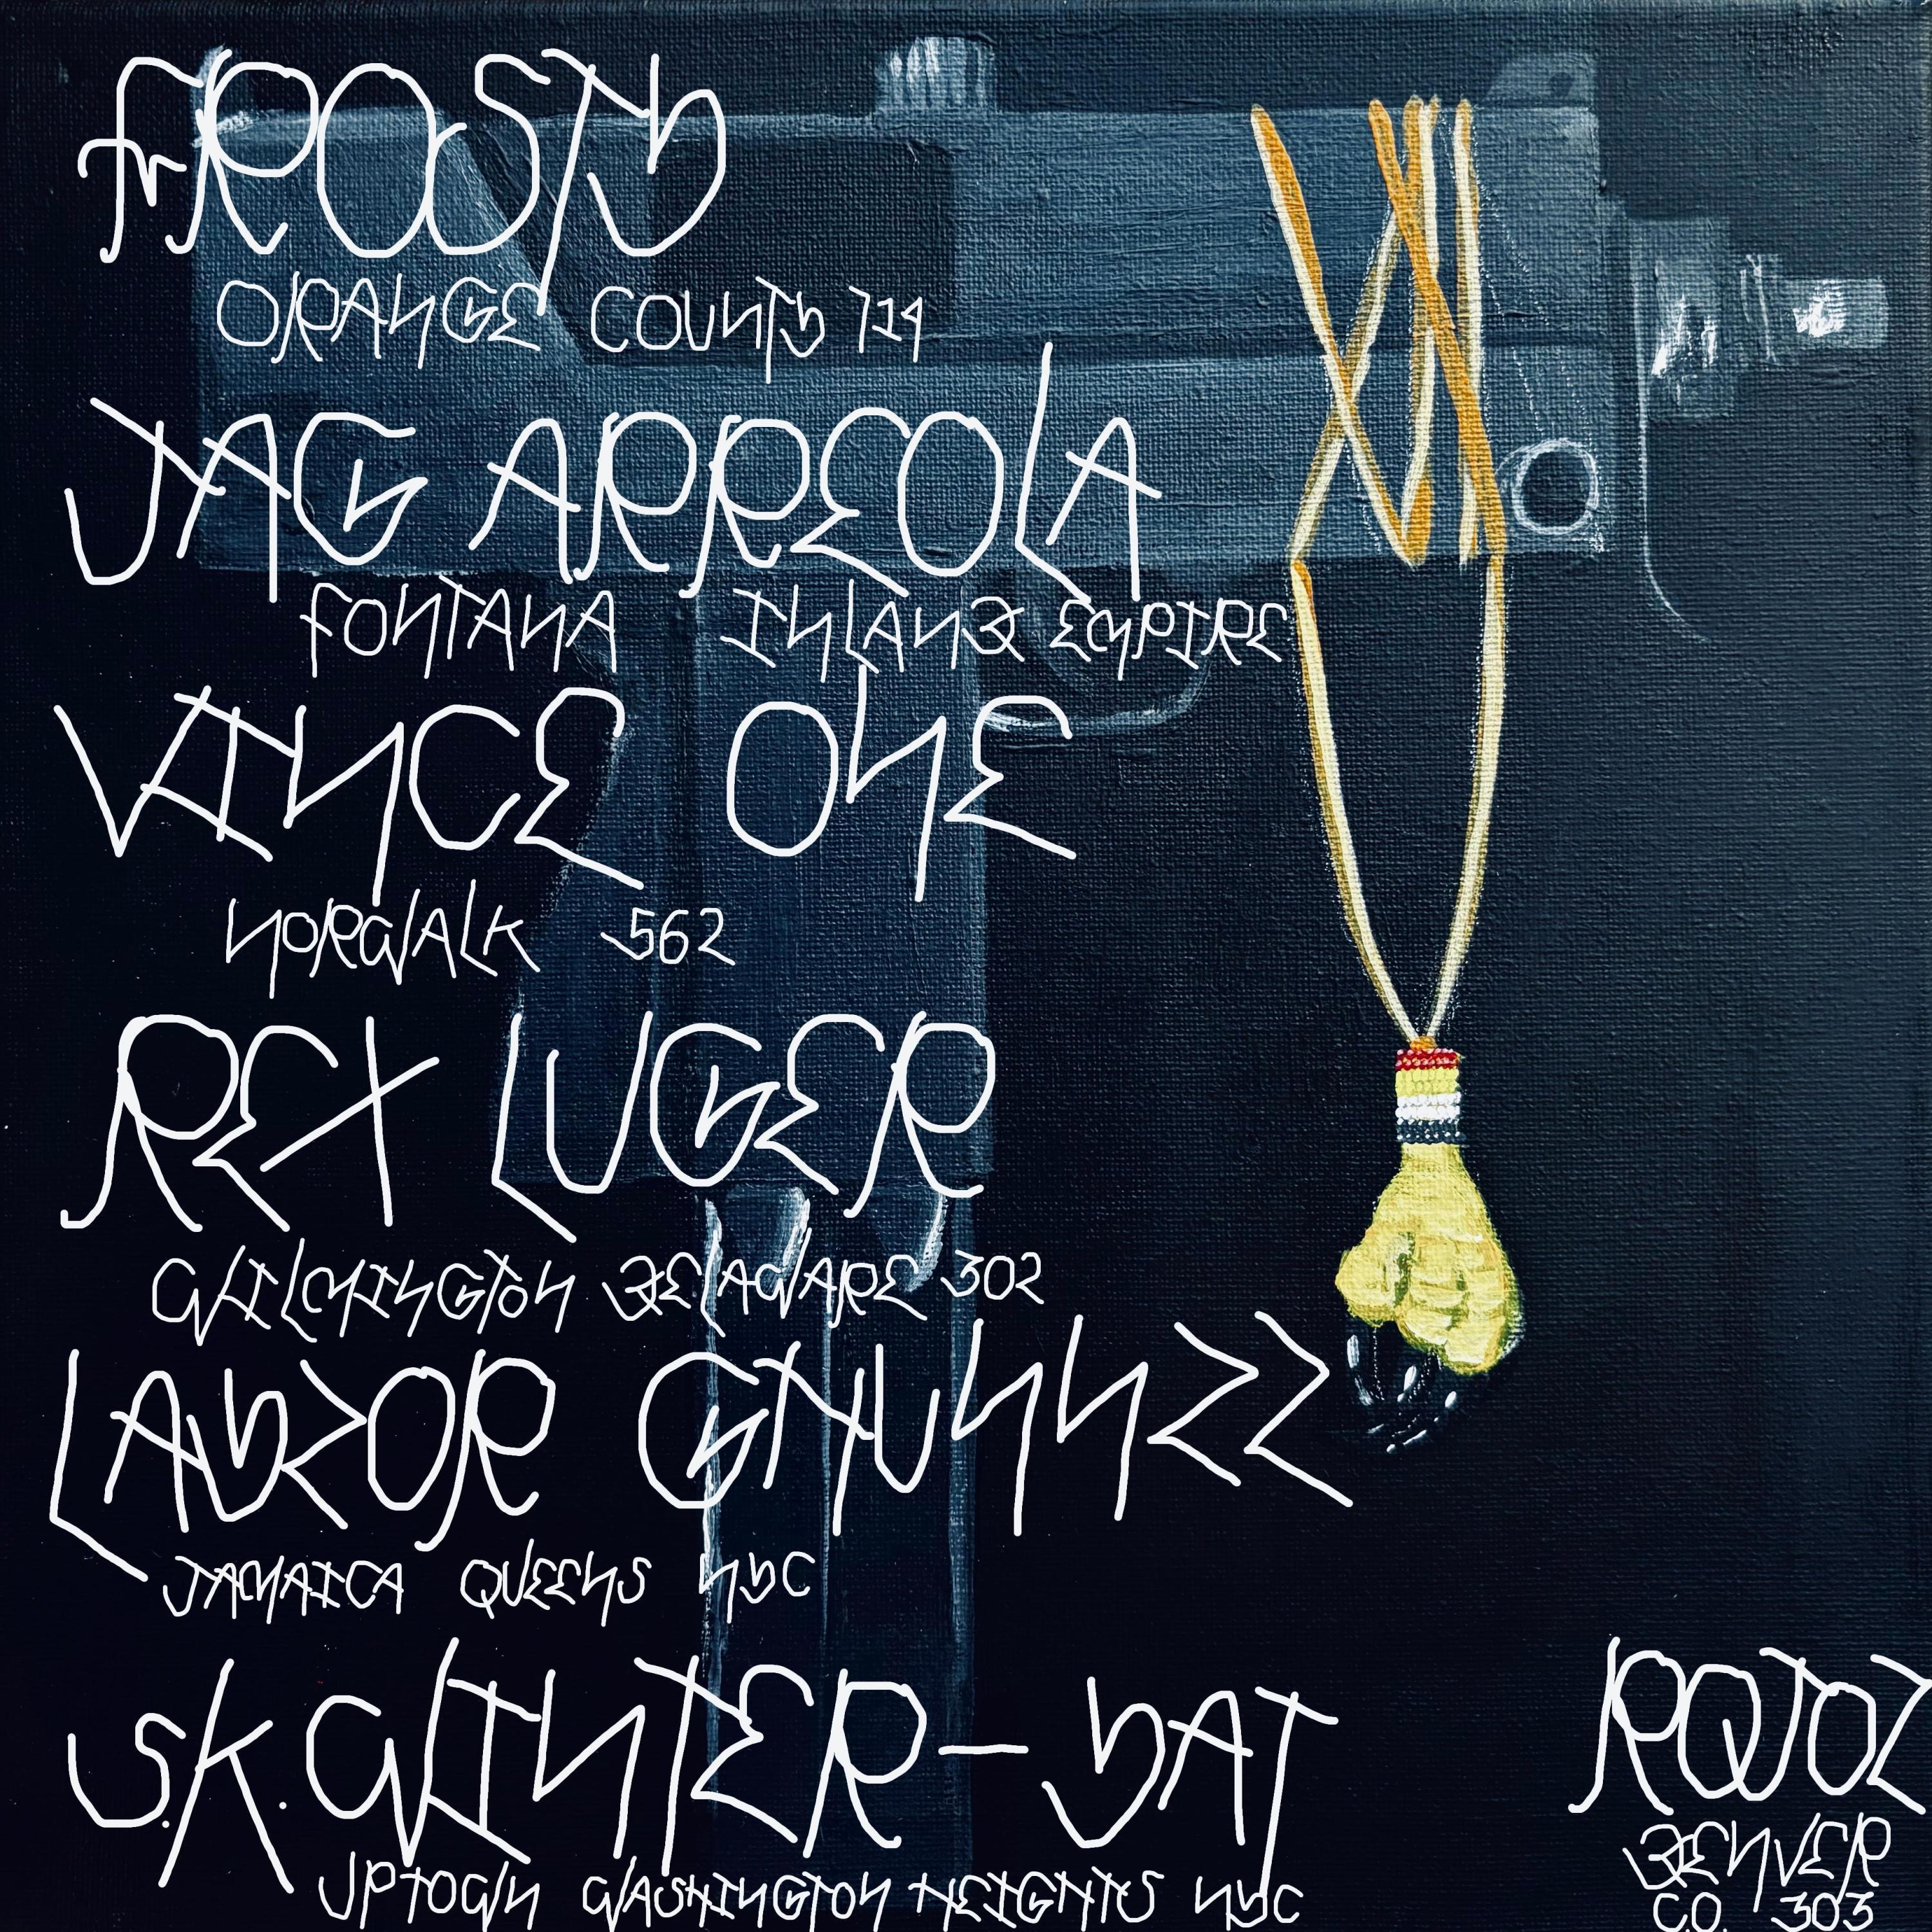 FROSTY
ORANGE COUNTY 714
JAG ARREOLA
FONTANA INLAND EMPIRE
VINCE ONE
NORWALK 562
REX LUGER
WILMINGTON DELAWARE 302
LAYZOR GHUNNZZ
JAMAICA QUEENS NYC
S.K. WINTER-YAT
UPTOWN WASHINGTON HEIGHTS NYC
DENVER
C.O. 303